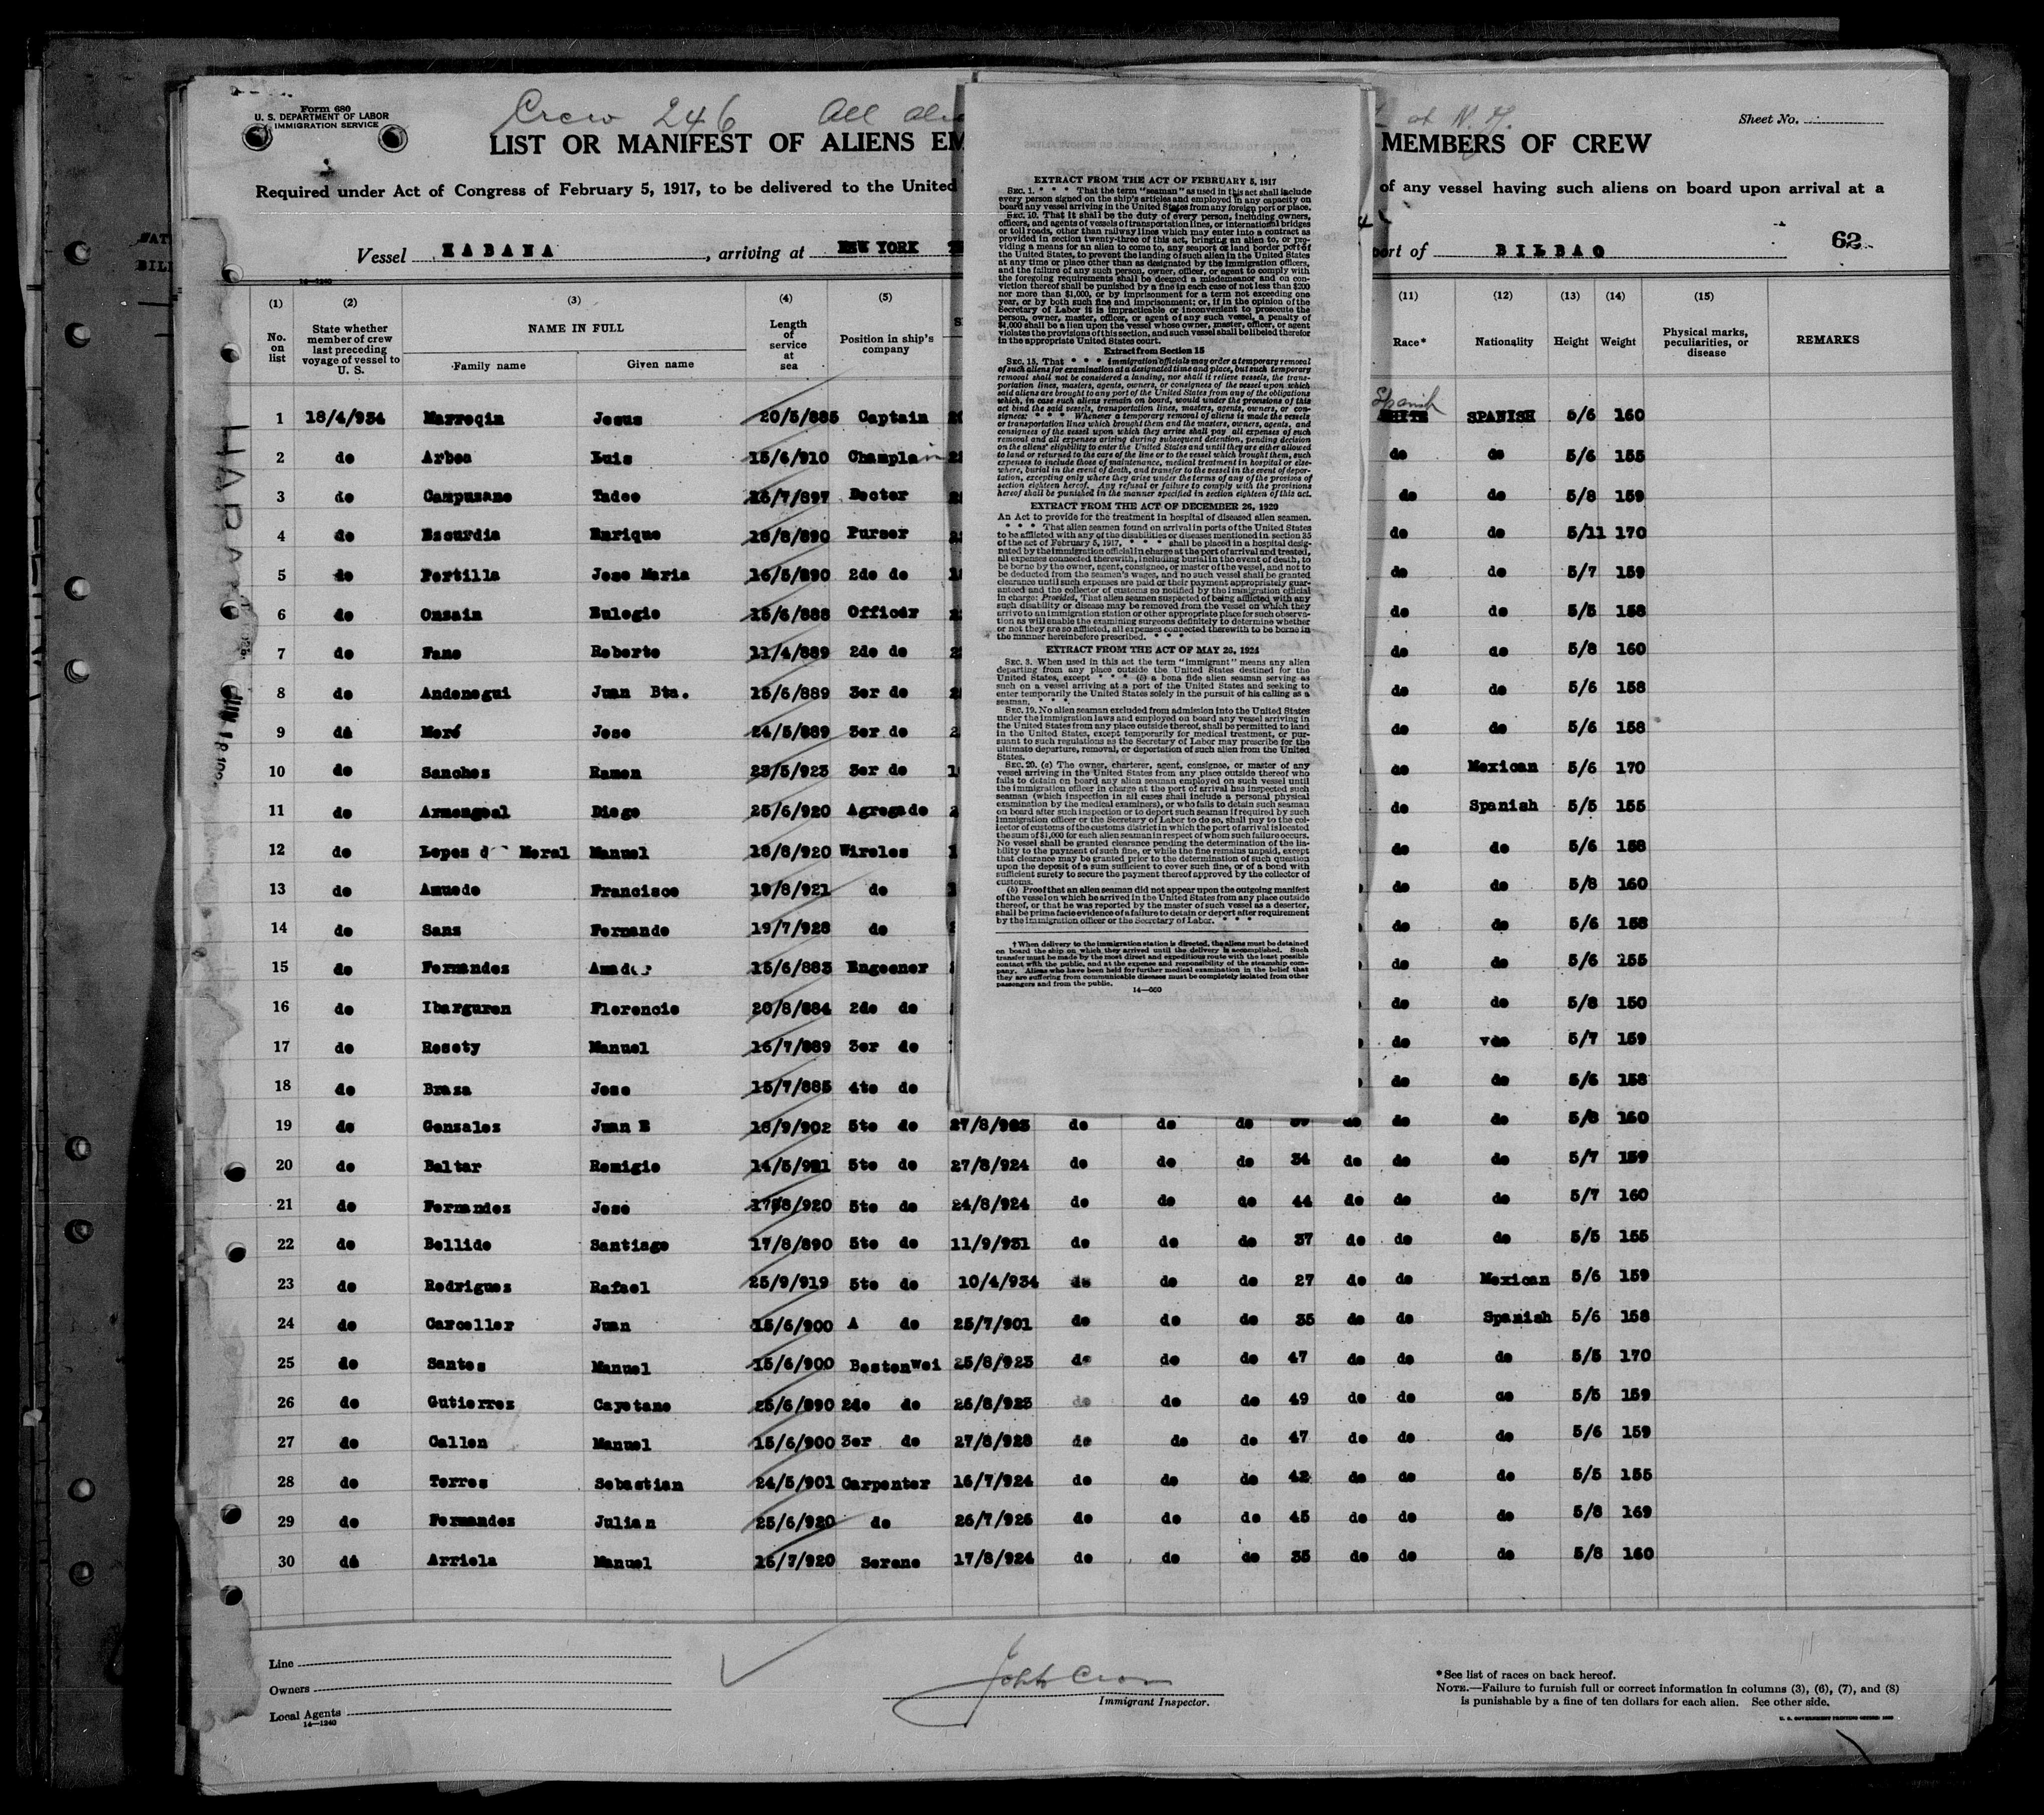 Form 680
U. S. DEPARTMENT OF LABOR
IMMIGRATION SERVICE
Crew 246 All
at N. Y.
Sheet No.
LIST OR MANIFEST OF ALIENS EM
MEMBERS OF CREW
Required under Act of Congress of February 5, 1917, to be delivered to the United
of any vessel having such aliens on board upon arrival at a
Vessel HABANA, arriving at NEW YORK
port of BILBAO
62
14—1240
(1) (2) (3) (4) (5) (11) (12) (13) (14) (15)
No. on list
State whether member of crew last preceding voyage of vessel to U. S.
NAME IN FULL
Family name Given name
Length of service at sea
Position in ship's company
Race* Nationality Height Weight
Physical marks, peculiarities, or disease
REMARKS
Spanish
1 18/4/934 Marroqin Jesus 20/5/885 Captain WHITE SPANISH 5/6 160
2 do Arbea Luis 15/6/910 Champlain do do 5/6 155
3 do Campuzano Tadeo 25/7/897 Doctor do do 5/8 159
4 do Escurdia Enrique 18/8/890 Purser do do 5/11 170
5 do Portilla Jose Maria 16/5/890 2do do do do 5/7 159
6 do Onzain Eulogio 15/6/888 Officer do do 5/5 158
7 do Fano Roberto 11/4/889 2do do do do 5/8 160
8 do Andonegui Juan Bta. 15/6/889 3er do do do 5/6 158
9 do Moré Jose 24/5/889 3er do do do 5/6 158
10 do Sanchez Ramon 23/5/923 3er do do Mexican 5/6 170
11 do Armengoal Diego 25/6/920 Agregado do Spanish 5/5 155
12 do Lopez d Moral Manuel 18/8/920 Wireles do do 5/6 158
13 do Amuedo Francisco 19/8/921 do do do 5/8 160
14 do Sanz Fernando 19/7/928 do do do 5/6 158
15 do Fernandez Amador 15/6/883 Engeener do do 5/6 155
16 do Ibarguren Florencio 20/8/884 2do do do do 5/8 150
17 do Rosety Manuel 16/7/889 3er do do do 5/7 159
18 do Braza Jose 15/7/885 4to do do do 5/6 158
19 do Gonzalez Juan B 18/9/902 5to do 27/8/923 do do do do do do 5/8 160
20 do Baltar Remigio 14/5/921 5to do 27/8/924 do do do 34 do do do 5/7 159
21 do Fernandez Jose 17/8/920 5to do 24/8/924 do do do 44 do do do 5/7 160
22 do Bellido Santiago 17/8/890 5to do 11/9/931 do do do 37 do do do 5/5 155
23 do Rodriguez Rafael 25/9/919 5to do 10/4/934 do do do 27 do do Mexican 5/6 159
24 do Carceller Juan 15/6/900 A do 25/7/901 do do do 35 do do Spanish 5/6 158
25 do Santos Manuel 15/6/900 BostonWei 25/8/923 do do do 47 do do do 5/5 170
26 do Gutierrez Cayetano 25/6/890 2do do 26/8/923 do do do 49 do do do 5/5 159
27 do Callon Manuel 15/6/900 3er do 27/8/928 do do do 47 do do do 5/6 159
28 do Torres Sebastian 24/5/901 Carpenter 16/7/924 do do do 42 do do do 5/5 155
29 do Fernandez Julian 25/6/920 do 26/7/926 do do do 45 do do do 5/8 169
30 do Arriola Manuel 16/7/920 Sereno 17/8/924 do do do 35 do do do 5/8 160
EXTRACT FROM THE ACT OF FEBRUARY 5, 1917
SEC. 1. * * * That the term "seaman" as used in this act shall include
every person signed on the ship's articles and employed in any capacity on
board any vessel arriving in the United States from any foreign port or place.
SEC. 10. That it shall be the duty of every person, including owners,
officers, and agents of vessels of transportation lines, or international bridges
or toll roads, other than railway lines which may enter into a contract as
provided in section twenty-three of this act, bringing an alien to, or pro-
viding a means for an alien to come to, any seaport or land border port of
the United States, to prevent the landing of such alien in the United States
at any time or place other than as designated by the immigration officers,
and the failure of any such person, owner, officer, or agent to comply with
the foregoing requirements shall be deemed a misdemeanor and on con-
viction thereof shall be punished by a fine in each case of not less than $200
nor more than $1,000, or by imprisonment for a term not exceeding one
year, or by both such fine and imprisonment; or, if in the opinion of the
Secretary of Labor it is impracticable or inconvenient to prosecute the
person, owner, master, officer, or agent of any such vessel, a penalty of
$1,000 shall be a lien upon the vessel whose owner, master, officer, or agent
violates the provisions of this section, and such vessel shall be libeled therefor
in the appropriate United States court.
Extract from Section 15
SEC. 15. That * * * immigration officials may order a temporary removal
of such aliens for examination at a designated time and place, but such temporary
removal shall not be considered a landing, nor shall it relieve vessels, the trans-
portation lines, masters, agents, owners, or consignees of the vessel upon which
said aliens are brought to any port of the United States from any of the obligations
which, in case such aliens remain on board, would under the provisions of this
act bind the said vessels, transportation lines, masters, agents, owners, or con-
signees: * * * Whenever a temporary removal of aliens is made the vessels
or transportation lines which brought them and the masters, owners, agents, and
consignees of the vessel upon which they arrive shall pay all expenses of such
removal and all expenses arising during subsequent detention, pending decision
on the aliens' eligibility to enter the United States and until they are either allowed
to land or returned to the care of the line or to the vessel which brought them, such
expenses to include those of maintenance, medical treatment in hospital or else-
where, burial in the event of death, and transfer to the vessel in the event of depor-
tation, excepting only where they arise under the terms of any of the provisos of
section eighteen hereof. Any refusal or failure to comply with the provisions
hereof shall be punished in the manner specified in section eighteen of this act.
EXTRACT FROM THE ACT OF DECEMBER 26, 1920
An Act to provide for the treatment in hospital of diseased alien seamen.
* * * That alien seamen found on arrival in ports of the United States
to be afflicted with any of the disabilities or diseases mentioned in section 35
of the act of February 5, 1917, * * * shall be placed in a hospital desig-
nated by the immigration official in charge at the port of arrival and treated,
all expenses connected therewith, including burial in the event of death, to
be borne by the owner, agent, consignee, or master of the vessel, and not to
be deducted from the seamen's wages, and no such vessel shall be granted
clearance until such expenses are paid or their payment appropriately guar-
anteed and the collector of customs so notified by the immigration official
in charge: Provided, That alien seamen suspected of being afflicted with any
such disability or disease may be removed from the vessel on which they
arrive to an immigration station or other appropriate place for such observa-
tion as will enable the examining surgeons definitely to determine whether
or not they are so afflicted, all expenses connected therewith to be borne in
the manner hereinbefore prescribed. * * *
EXTRACT FROM THE ACT OF MAY 26, 1924
SEC. 3. When used in this act the term "immigrant" means any alien
departing from any place outside the United States destined for the
United States, except * * * (5) a bona fide alien seaman serving as
such on a vessel arriving at a port of the United States and seeking to
enter temporarily the United States solely in the pursuit of his calling as a
seaman. * * *
SEC. 19. No alien seaman excluded from admission into the United States
under the immigration laws and employed on board any vessel arriving in
the United States from any place outside thereof, shall be permitted to land
in the United States, except temporarily for medical treatment, or pur-
suant to such regulations as the Secretary of Labor may prescribe for the
ultimate departure, removal, or deportation of such alien from the United
States.
SEC. 20. (a) The owner, charterer, agent, consignee, or master of any
vessel arriving in the United States from any place outside thereof who
fails to detain on board any alien seaman employed on such vessel until
the immigration officer in charge at the port of arrival has inspected such
seaman (which inspection in all cases shall include a personal physical
examination by the medical examiners), or who fails to detain such seaman
on board after such inspection or to deport such seaman if required by such
immigration officer or the Secretary of Labor to do so, shall pay to the col-
lector of customs of the customs district in which the port of arrival is located
the sum of $1,000 for each alien seaman in respect of whom such failure occurs.
No vessel shall be granted clearance pending the determination of the lia-
bility to the payment of such fine, or while the fine remains unpaid, except
that clearance may be granted prior to the determination of such question
upon the deposit of a sum sufficient to cover such fine, or of a bond with
sufficient surety to secure the payment thereof approved by the collector of
customs.
(b) Proof that an alien seaman did not appear upon the outgoing manifest
of the vessel on which he arrived in the United States from any place outside
thereof, or that he was reported by the master of such vessel as a deserter,
shall be prima facie evidence of a failure to detain or deport after requirement
by the immigration officer or the Secretary of Labor. * * *
† When delivery to the immigration station is directed, the aliens must be detained
on board the ship on which they arrived until the delivery is accomplished. Such
transfer must be made by the most direct and expeditious route with the least possible
contact with the public, and at the expense and responsibility of the steamship com-
pany. Aliens who have been held for further medical examination in the belief that
they are suffering from communicable diseases must be completely isolated from other
passengers and from the public.
14—600
Line
Owners
Local Agents
14—1240
Immigrant Inspector.
*See list of races on back hereof.
NOTE.—Failure to furnish full or correct information in columns (3), (6), (7), and (8)
is punishable by a fine of ten dollars for each alien. See other side.